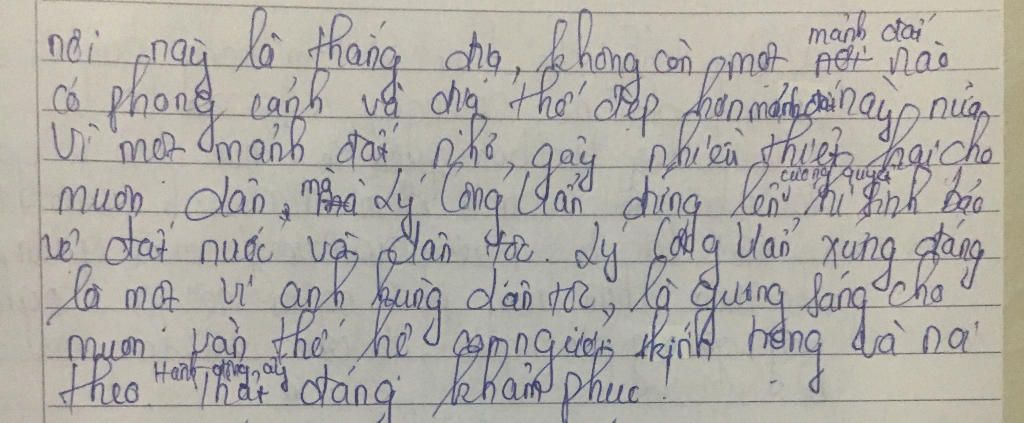 nơi này là thắng địa, không còn một mảnh đất nào
có phong cảnh và địa thế đẹp hơn mảnh đất này nữa,
Vì một mảnh đất nhỏ, gây nhiều thiệt hại cho
muôn dân, mà Lý Công Uẩn đứng lên cương quyết hi sinh bảo
vệ đất nước và dân tộc. Lý Công Uẩn xứng đáng
là một vị anh hùng dân tộc, là gương sáng cho
muôn vàn thế hệ con người kính và noi
theo Hành động ấy thật đáng khâm phục!